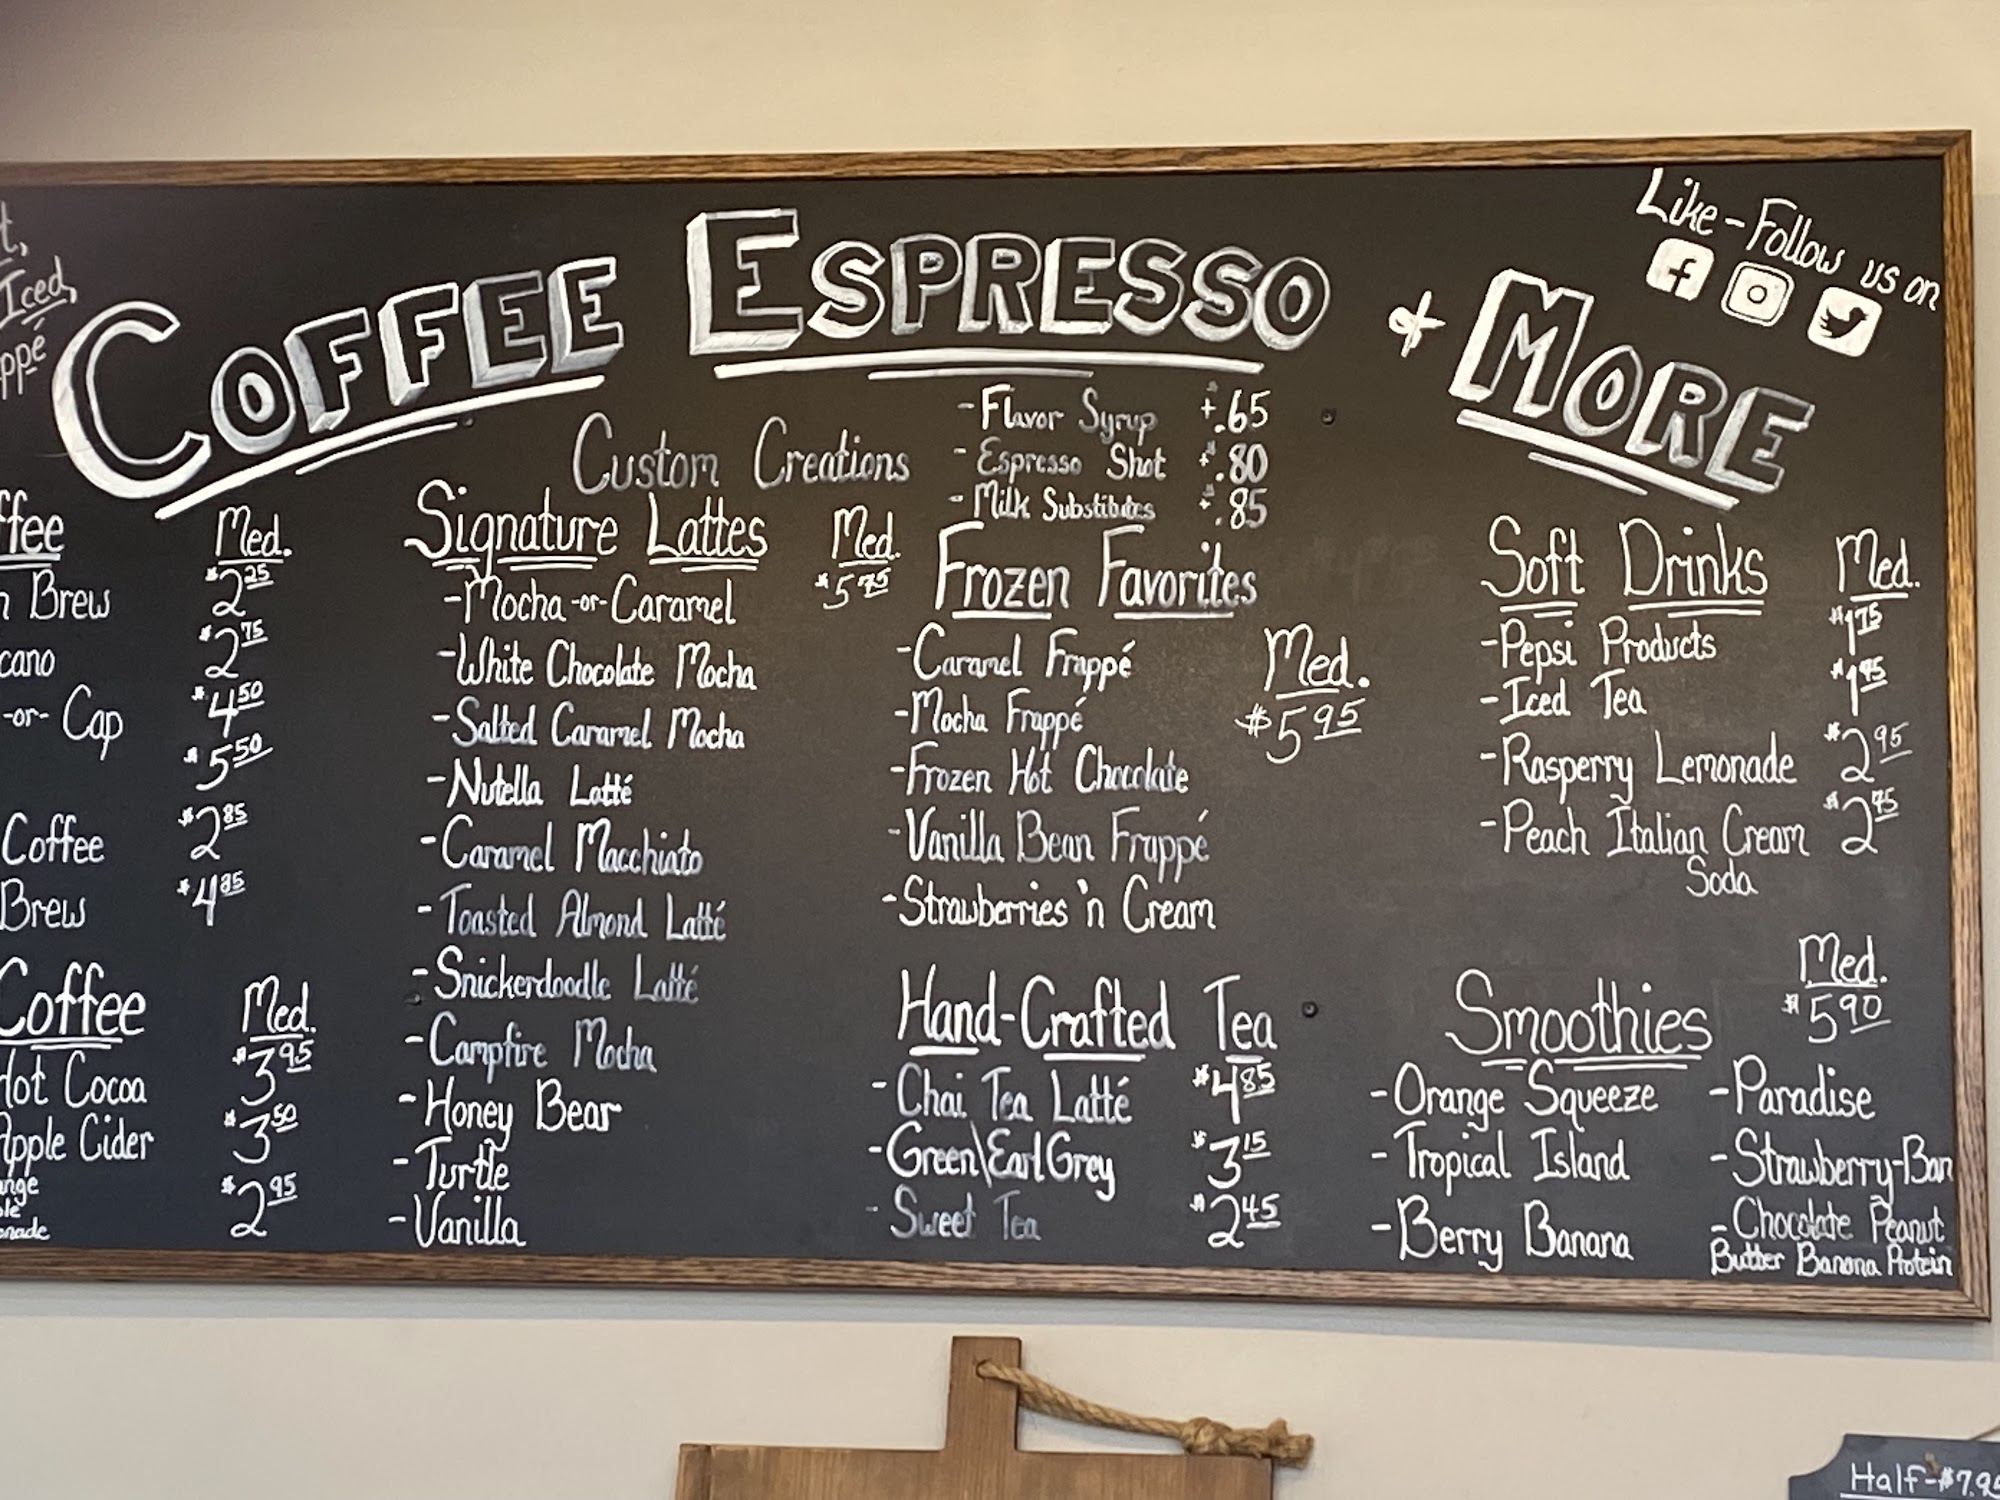 Iced,
Like - Follow us on
COFFEE ESPRESSO & MORE
Custom Creations
- Flavor Syrup $+.65
- Espresso Shot $+.80
- Milk Substitutes $+.85
Med.
Brew $2.25
$2.75
-or- Cap $4.50
$5.50
Coffee $2.85
Brew $4.85
Coffee Med.
Hot Cocoa $3.95
Apple Cider $3.50
$2.95
Signature Lattes Med.
-Mocha -or- Caramel $5.75
-White Chocolate Mocha
-Salted Caramel Mocha
-Nutella Latté
-Caramel Macchiato
-Toasted Almond Latté
-Snickerdoodle Latté
-Campfire Mocha
-Honey Bear
-Turtle
-Vanilla
Frozen Favorites
-Caramel Frappé Med.
-Mocha Frappé $5.95
-Frozen Hot Chocolate
-Vanilla Bean Frappé
-Strawberries 'n Cream
Hand-Crafted Tea
- Chai Tea Latté $4.85
-Green\Earl Grey $3.15
- Sweet Tea $2.45
Soft Drinks Med.
-Pepsi Products $1.75
-Iced Tea
-Rasperry Lemonade $2.95
-Peach Italian Cream
Soda
Med.
Smoothies $5.90
-Orange Squeeze -Paradise
-Tropical Island -Strawberry-Ban
-Berry Banana -Chocolate Peanut
Butter Banana Protein
Half-$7.95